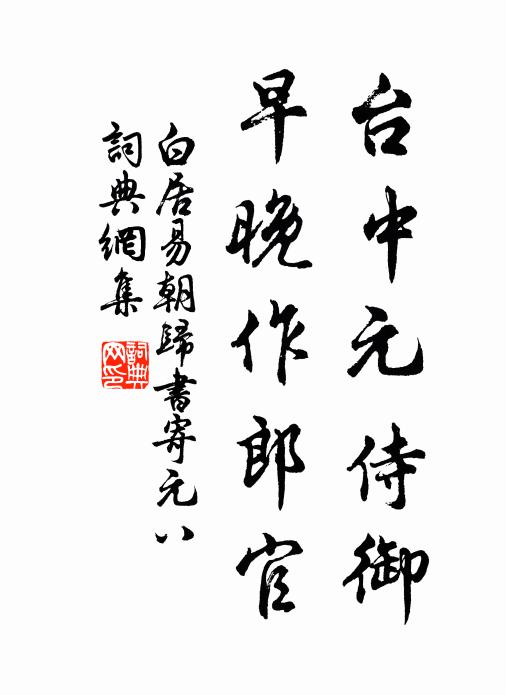 台中元侍御
早晚作郎官
白居易朝歸書寄元八
詞典網集
詞典網印